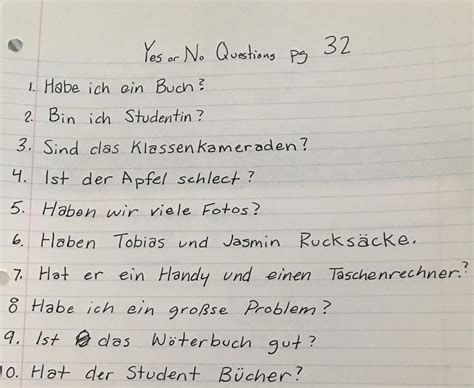 Yes or No Questions pg 32
1. Habe ich ein Buch?
2. Bin ich Studentin?
3. Sind das Klassenkameraden?
4. Ist der Apfel schlect?
5. Haben wir viele Fotos?
6. Haben Tobias und Jasmin Rucksäcke.
7. Hat er ein Handy und einen Taschenrechner?
8 Habe ich ein großse Problem?
9. Ist das Wöterbuch gut?
10. Hat der Student Bücher?